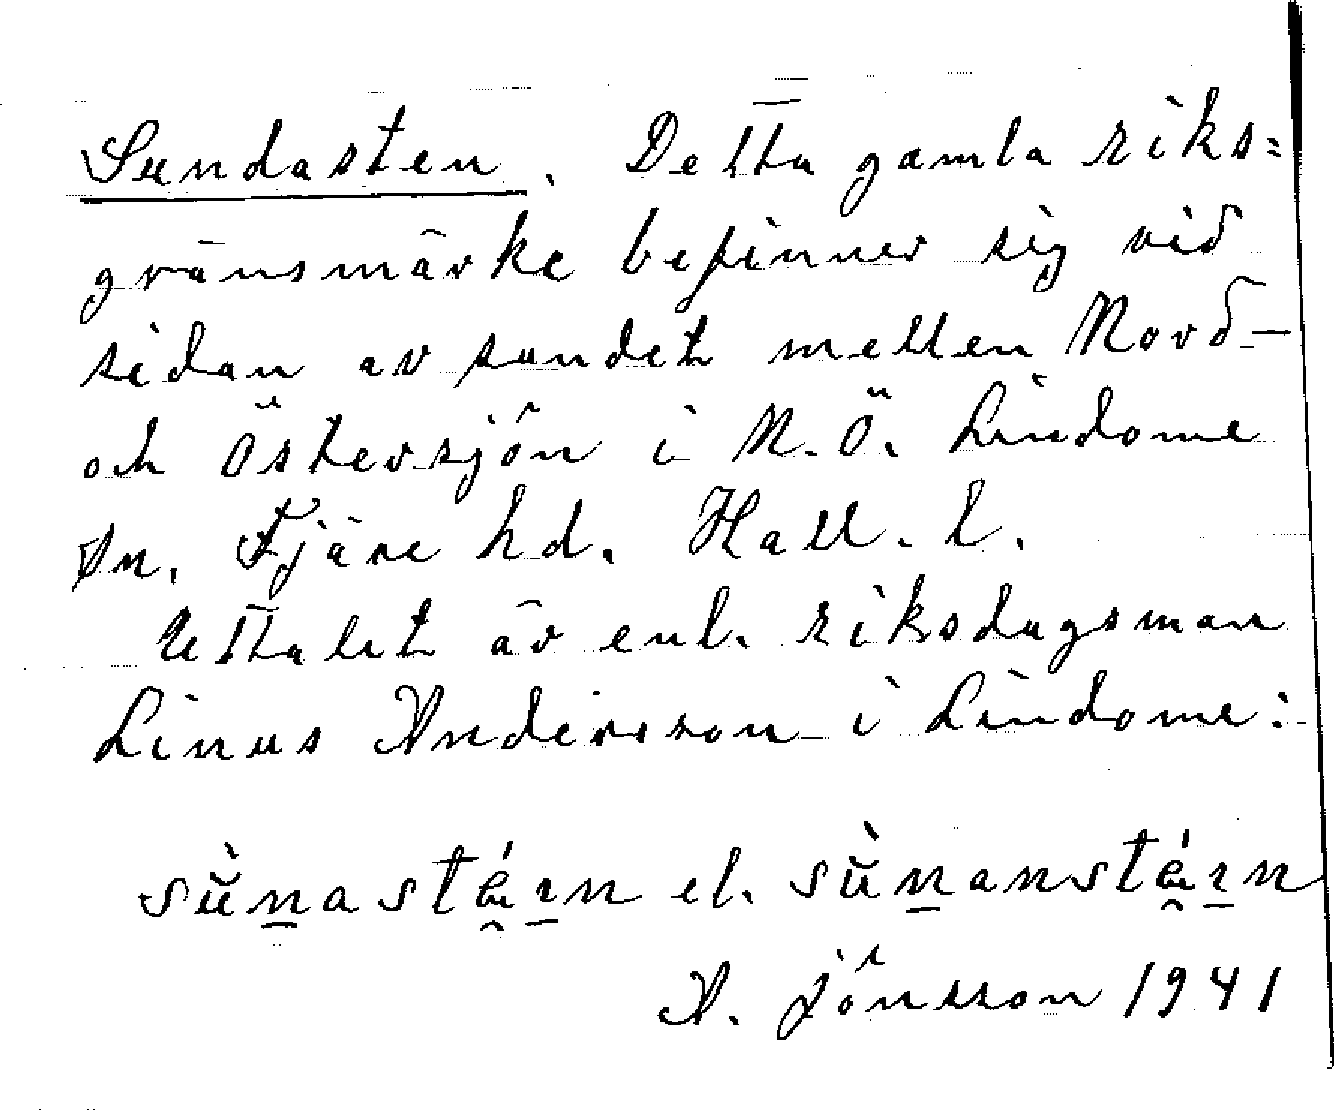 Sundasten. Detta gamla riks=
gränsmärke befinner sig vid
sidan av sundet mellen Nord-
och Östersjön i N.Ö. Lindome
sn. Fjäre hd. Hall. l.
Uttalet är enl. riksdagsman
Linus Andersson i Lindome:
el.
A. Jönsson 1941